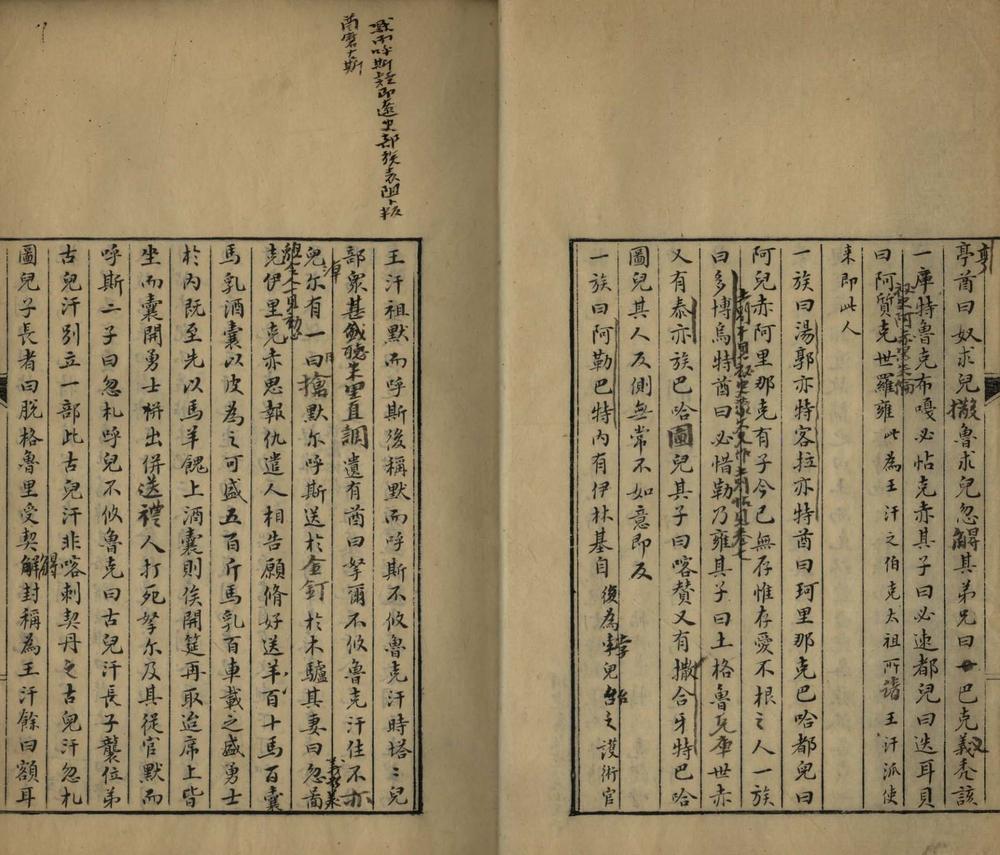 亭酋曰奴求兒撥魯求兒忽解其弟兄曰巴克義禿該
一庫特魯克布嘎必帖克赤其子曰必速都兒曰迭耳貝
曰阿質克世羅雍此為王汗之伯克太祖所諸王汗派使
来即此人
一族曰湯郭亦特客拉亦特酋曰珂里那克巴哈都兒曰
阿兒赤阿里那克有子今已無存惟存愛不根之人一族
曰多博烏特酋曰必惜勒乃雍其子曰土格魯兒庫世赤
又有泰亦族巴哈圖兒其子曰喀赞又有撒合牙特巴哈
圖兒其人反側無常不如意即反
一族曰阿勒巴特内有伊林基自後為兒之護術官
默而呼斯疑即遼史部族表阻卜
菌磨古斯
王汗祖默而呼斯後稱默而呼斯不攸魯克汗時塔〻兒
部衆甚盛聽里直調遣有酋曰孥爾不攸魯克汗住不亦
兒尔有一曰搶默尔呼斯送於金釘於木驢其妻曰忽菌
克伊里克赤思報仇遣人相告願脩好送羊百十馬百囊
馬乳酒囊以皮為之可盛五百斤馬乳百車載之盛勇士
於内既至先以馬羊餽上酒囊則俟開筵再取迨席上皆
坐而囊開勇士拼出併送禮人打死孥尔及其從官默而
呼斯二子曰忽札呼兒不攸魯克曰古兒汗長子襲位弟
古兒汗别立一部此古兒汗非喀剌契丹之古兒汗忽札
圖兒子長者曰脱格魯里受契解封稱為王汗餘曰額耳